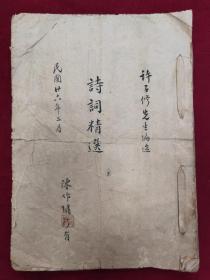 許子修先生編選
詩詞精選
民國廿六年二月
陳作  有